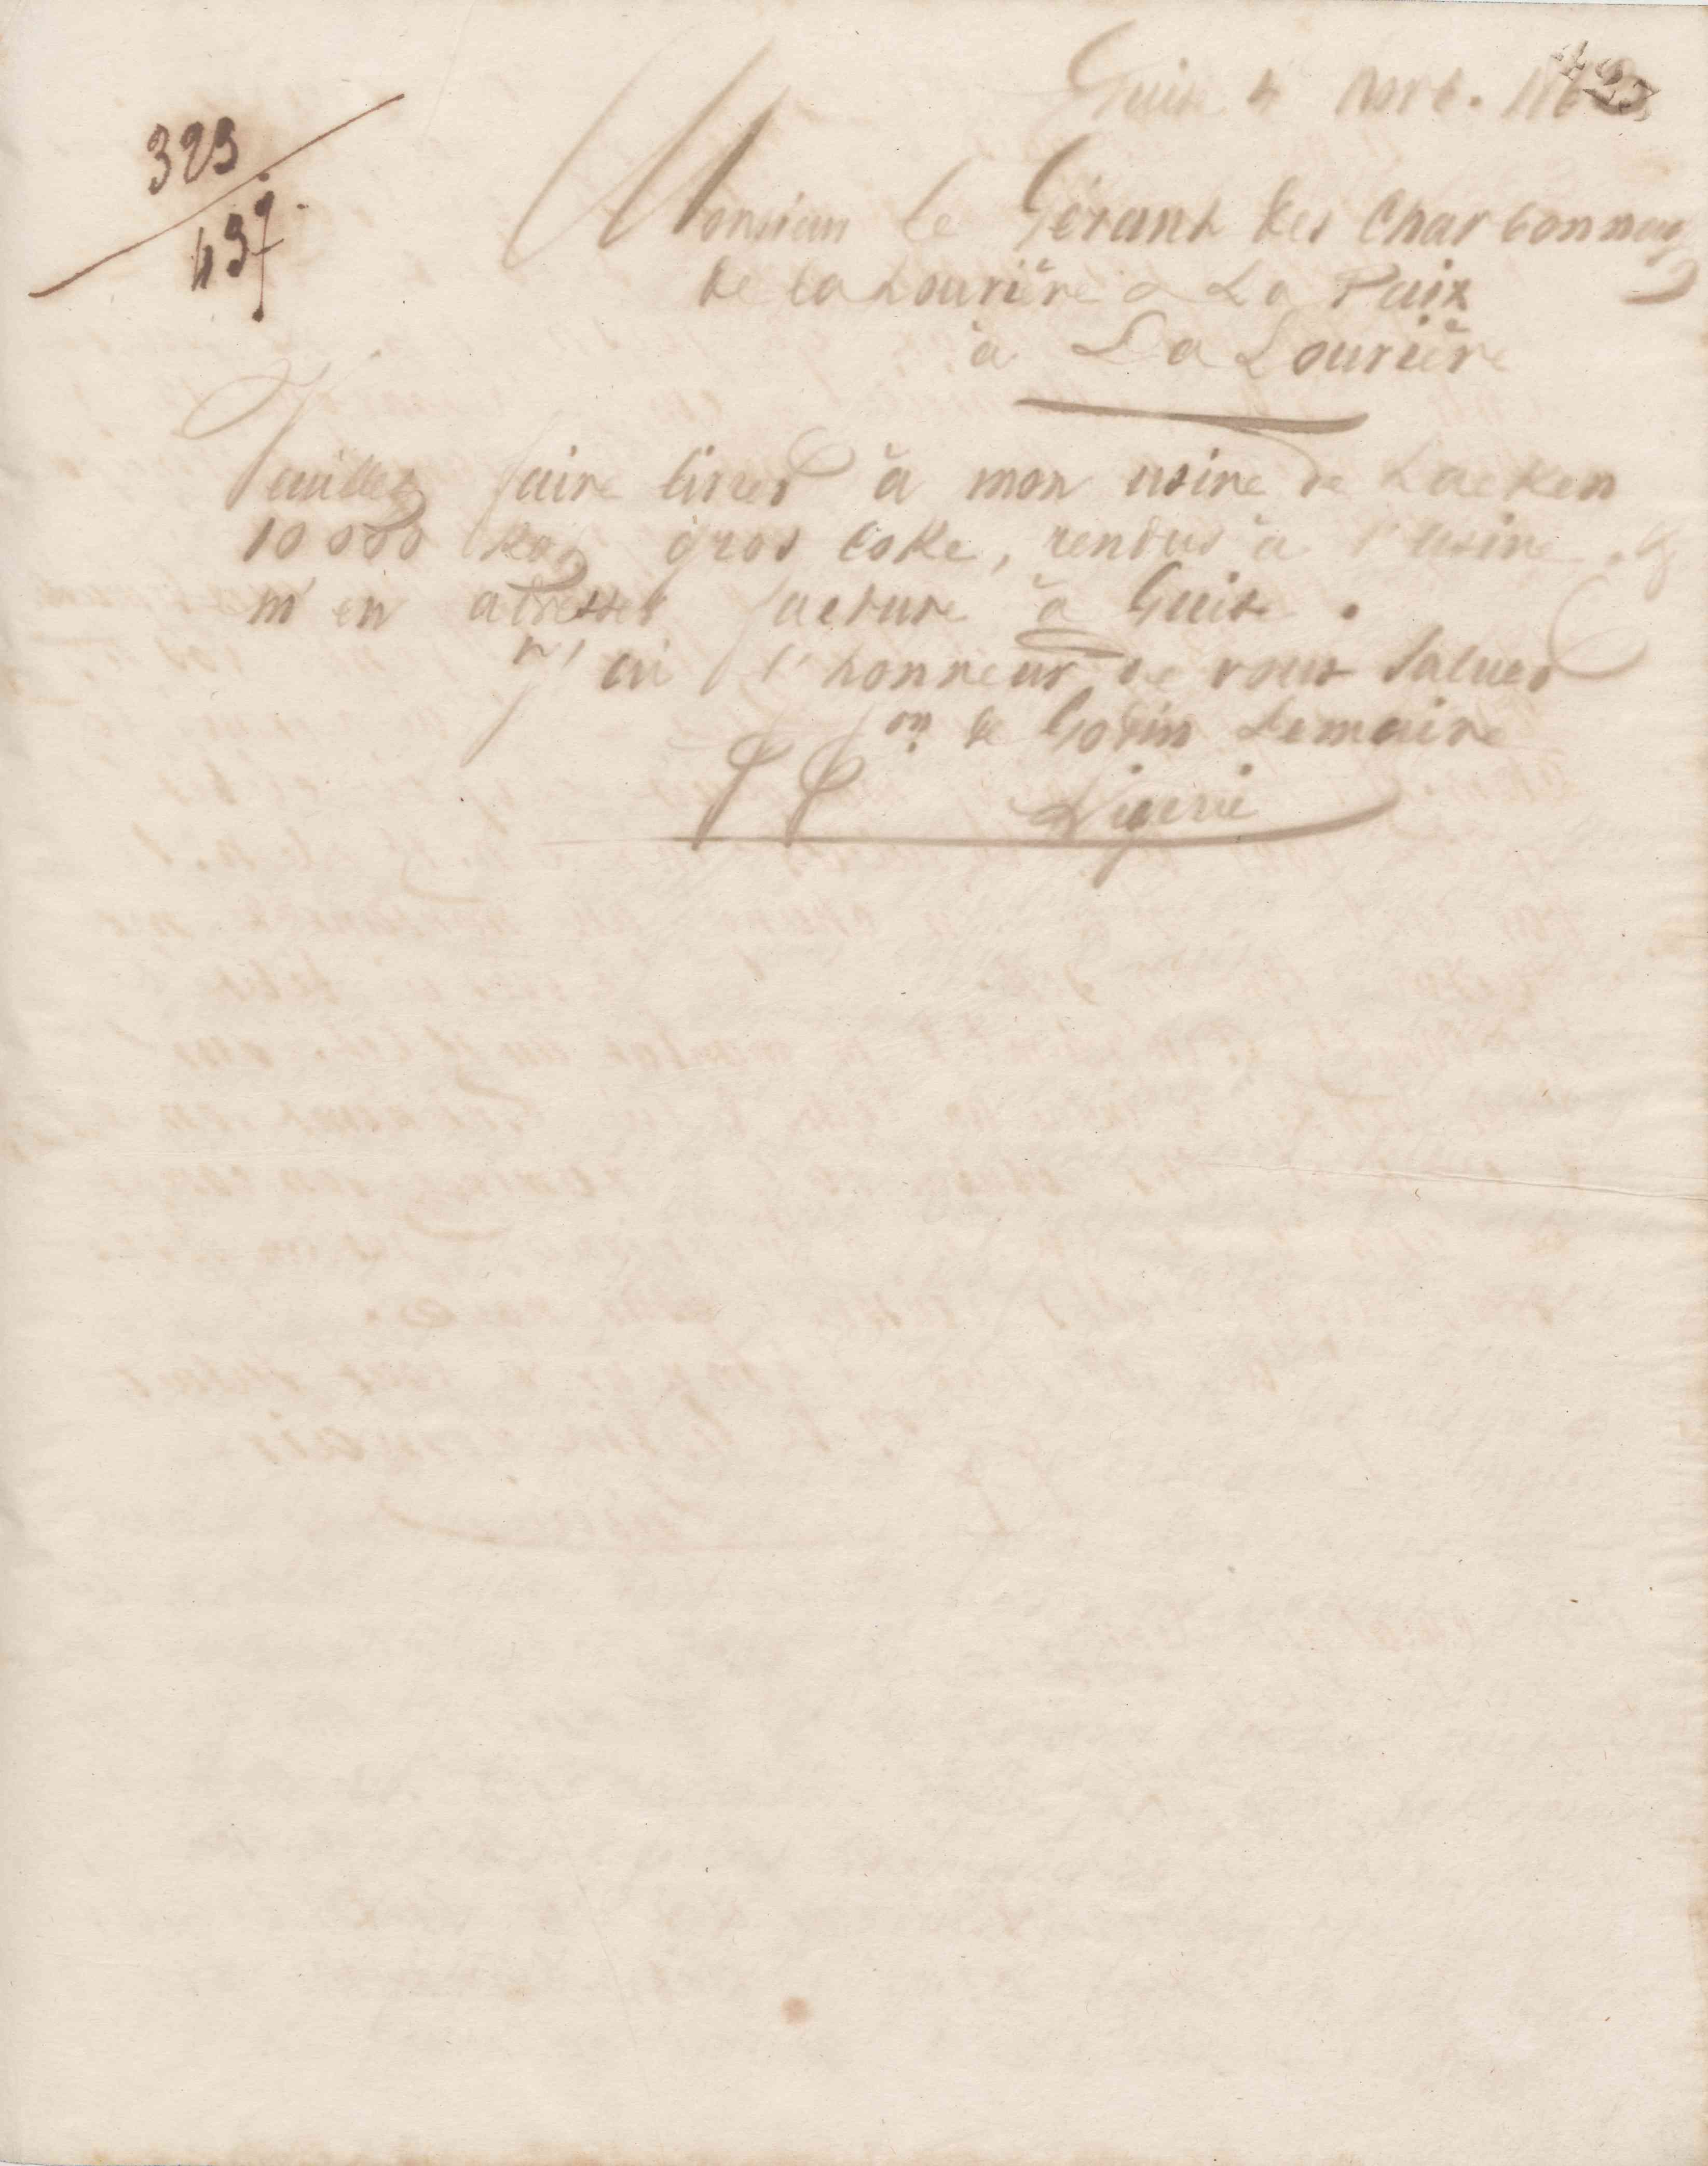 323
437
Guise 4 Novb. 186
Monsieur le Gérant des Charbonnag
de la Louvière & La Paix
à La Louvière
Veuillez faire livrer à mon usine de Laeken
10 000 kos gros coke, rendus à l'usine, &
m'en adresser facture à Guise.
J'ai l'honneur de vous saluer
Pr on. de Godin Lemaire
Ligerie